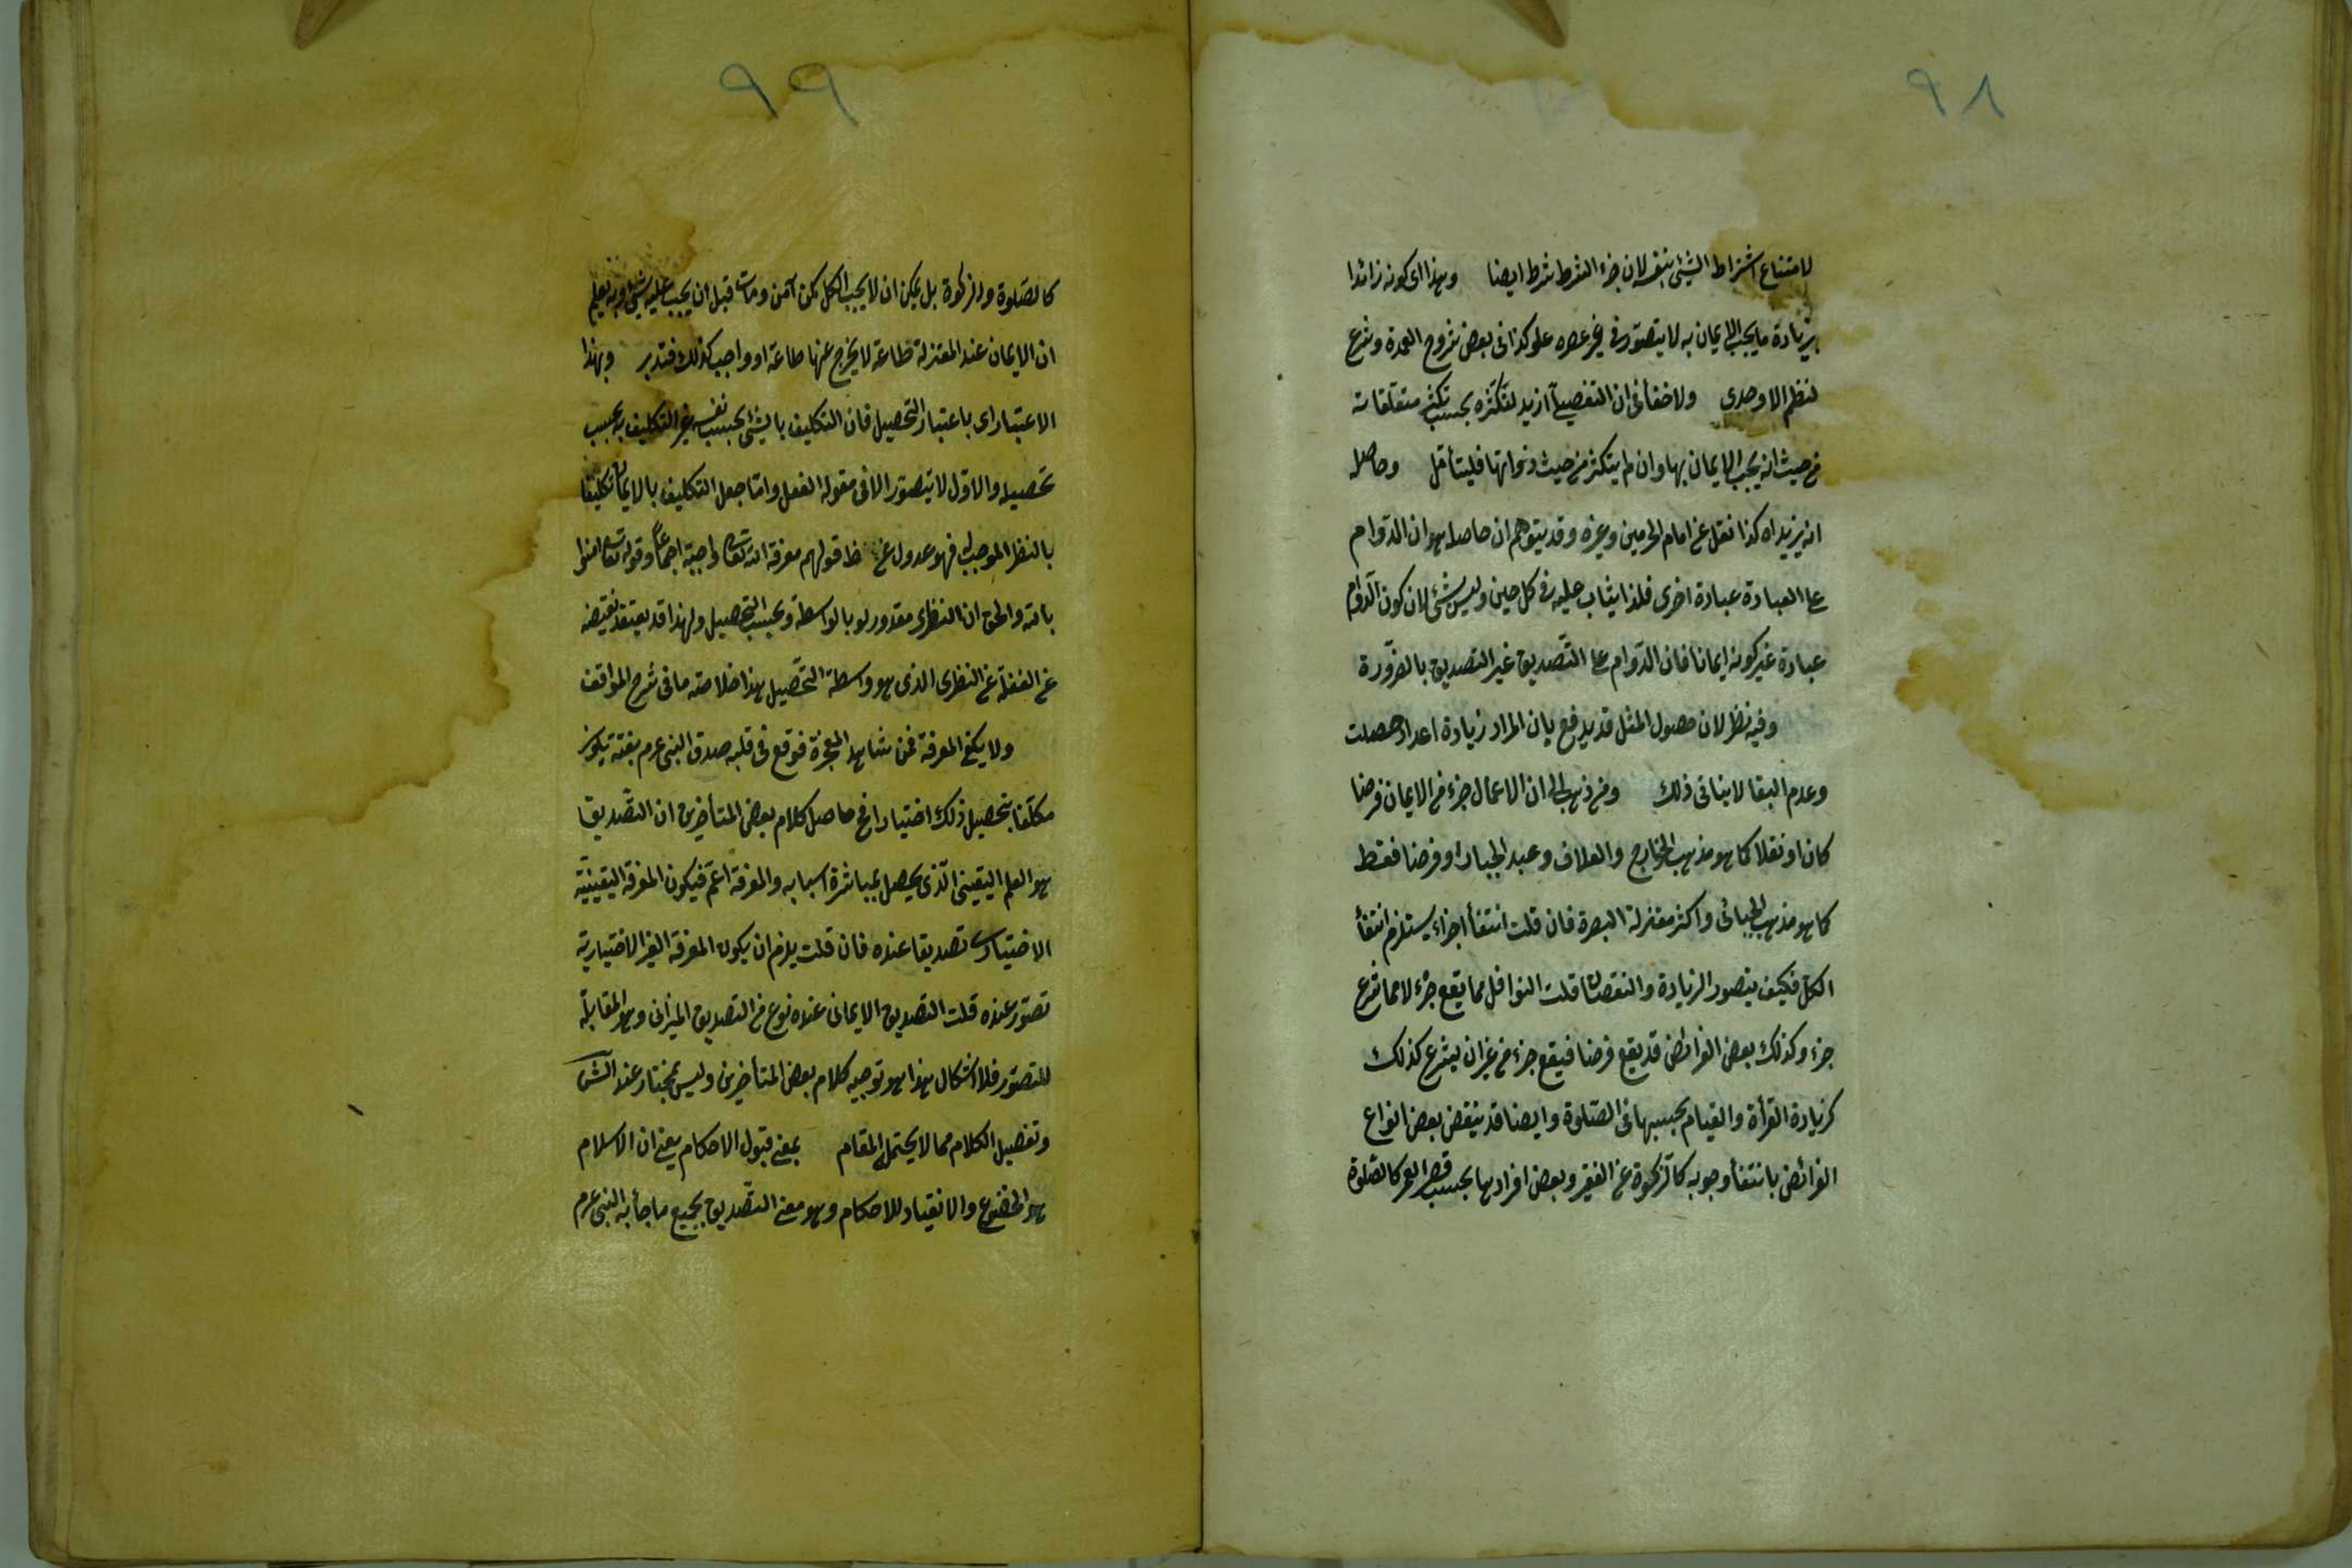 ٩٨
لامتناع اشتراط الشيئ بنفسه لان جزء الشرط شرط ايضا وهذا اى كونه زائدا
بزيادة ما يجب الايمان به لا يتصور فى غير عصره علو كذا فى بعض شروح العمدة وشرح
لنظم الاوحدى ولا خفأ فى ان التفصيل ازيد لتكثره بحسب تكثر متعلقاته
من حيث انه يجب الايمان بها وان لم يتكثر من حيث ذواتها فليتأمل وحاصله
انه يزيد اه كذا نقل عن امام الحرمين وغيره وقد يتوهم ان حاصله هو ان الدوام
على العبادة عبادة اخرى فلذا يثاب عليه فى كل حين وليس بشئ لان كون الدوام
عبادة غير كونه ايمانا فان الدوام على التصديق غير التصديق بالضرورة
وفيه نظر لان حصول المثل قد يدفع بان المراد زيادة اعداد حصلت
وعدم البقا لا ينافى ذلك ومن ذهب الى ان الاعمال جزء من الايمان فرضا
كان او نفلا كما هو مذهب الخوارج والعلاف وعبد الجبار او فرضا فقط
كما هو مذهب الجبائى واكثر معتزلة البصرة فان قلت انتفأ اجزاء يستلزم انتفأ
الكل فكيف يتصور الزيادة والنقصان قلت النوافل مما يقع جزء لا مما شرع
جزء وكذلك بعض الفرائض قد يقع فرضا فيقع جزء من غير ان يشرع كذلك
كزيادة القرأة والقيام بحسبها فى الصلوة وايضا قد ينقص بعض انواع
الفرائض بانتفأ وجوبه كالزكوة عن الفقير وبعض افرادها بحسب قصر العمر كالصلوة
٩٩
كالصلوة والزكوة بل يمكن ان لا يجب الكل كمن آمن ومات قبل ان يجب عليه شيئ وبه يعلم
ان الايمان عند المعتزلة طاعة لا يخرج عنها طاعة او واجب كذلك فتدبر وبهذا
الاعتبار اى باعتبار التحصيل فان التكليف بالشئ بحسب نفسه غير التكليف به بحسب
تحصيله والاول لا يتصور الا فى مقولة الفعل واما جعل التكليف بالايمان تكليفا
بالنظر الموجب له فهو عدول عن ظ قولهم معرفة الله تعالى واجبة اجماعا وقوله تعالى امنوا
بالله والحق ان النظرى مقدور لو بالواسطة وبحسب التحصيل ولهذا قد يعتقد نقيضه
عن الغفلة عن النظرى الذى هو واسطة التحصيل هذا خلاصة ما فى شرح المواقف
ولا يكفى المعرفة فمن شاهد المعجزة فوقع فى قلبه صدق النبى عم بغتة يكون
مكلفا بتحصيل ذلك اختيارا فى حاصل كلام بعض المتأخرين ان التصديق
هو العلم اليقينى الذى يحصل بمباشرة اسبابه والمعرفة اعم فيكون المعرفة اليقينية
الاختيارى تصديقا عنده فان قلت يلزم ان يكون المعرفة الغير الاختيارية
تصور عنده قلت التصديق الايمانى عنده نوع من التصديق الميزانى وهو المقابل
للتصور فلا اشكال هذا هو توجيه كلام بعض المتأخرين وليس بمختار عند الش
وتفصيل الكلام مما لا يحتمل المقام بمعنى قبول الاحكام يعنى ان الاسلام
هو الخضوع والانقياد للاحكام وهو معنى التصديق بجميع ما جأ به النبى عم